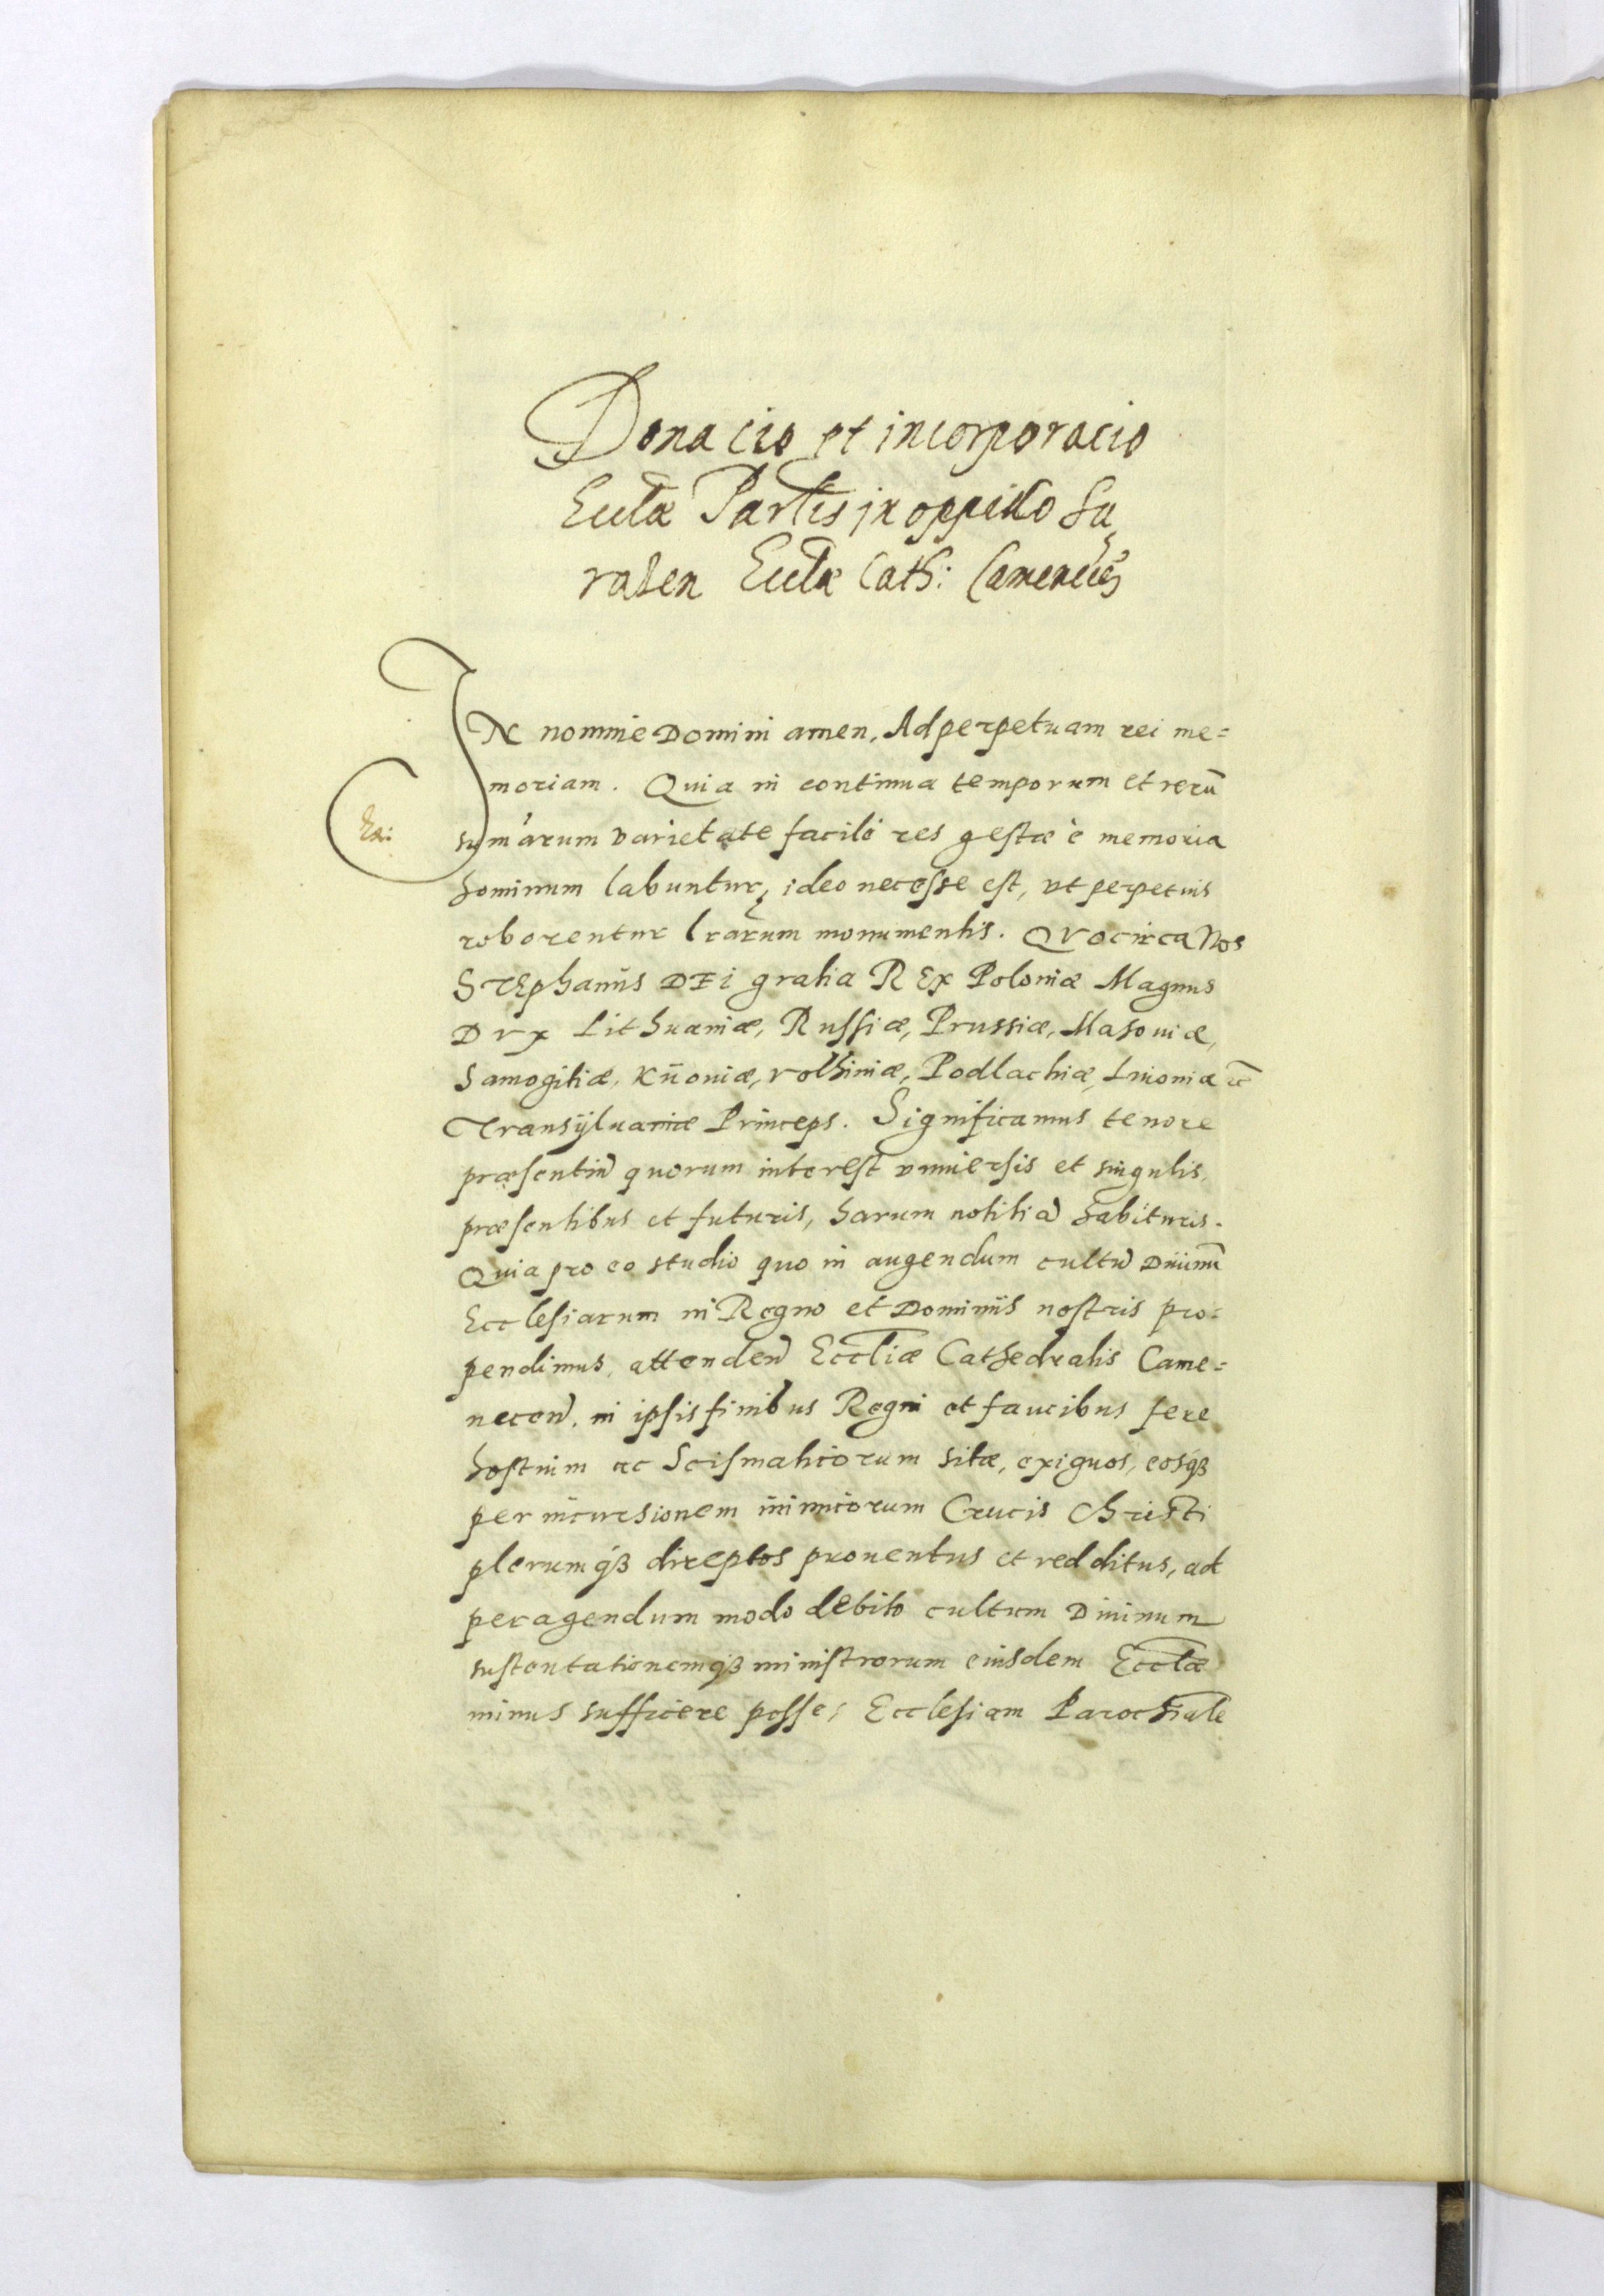 Donacio et incorporacio
Eccłæ Partis in oppido Su„
raden Eccłæ Cath: Camenecen̄
IN nomine Domini amen, Ad perpetuam rei me=
moriam. Quia in continua temporum et rerū
humanarum varietate facile res gestæ è memoria
hominum labuntur, ideo necesse est, vt perpetuis
roborentur lrārum monumentis. Qvocirca Nos
STEphanus DEi gratia REx Poloniæ Magnus
Dvx Lithuaniæ, Russiæ, Prussiæ, Masouiæ,
Samogitiæ, Kijouiæ, volhiniæ, Podlachiæ, Liuoniæ
Transÿluaniæ Princeps. Significamus tenore
præsentiū quorum interest vniuersis et singulis,
præsentibus et futuris, harum notitiā habituris.
Quia pro eo studio quo in augendum cultū Diuinū
Ecclesiarum in Regno et Dominijs nostris pro=
pendimus, attenden̄ Eccłiæ Cathedralis Came=
necen̄, in ipsis finibus Regni et faucibus fere
hostium ac Scismaticorum sitæ, exiguos, eosqȝ
per incursionem inimicorum Crucis Christi
plerumqȝ direptos prouentus et redditus, ad
peragendum modo debito cultum Diuinum
sustentationemqȝ ministrorum eiusdem Eccłæ
minus sufficere posse, Ecclesiam Parochialē